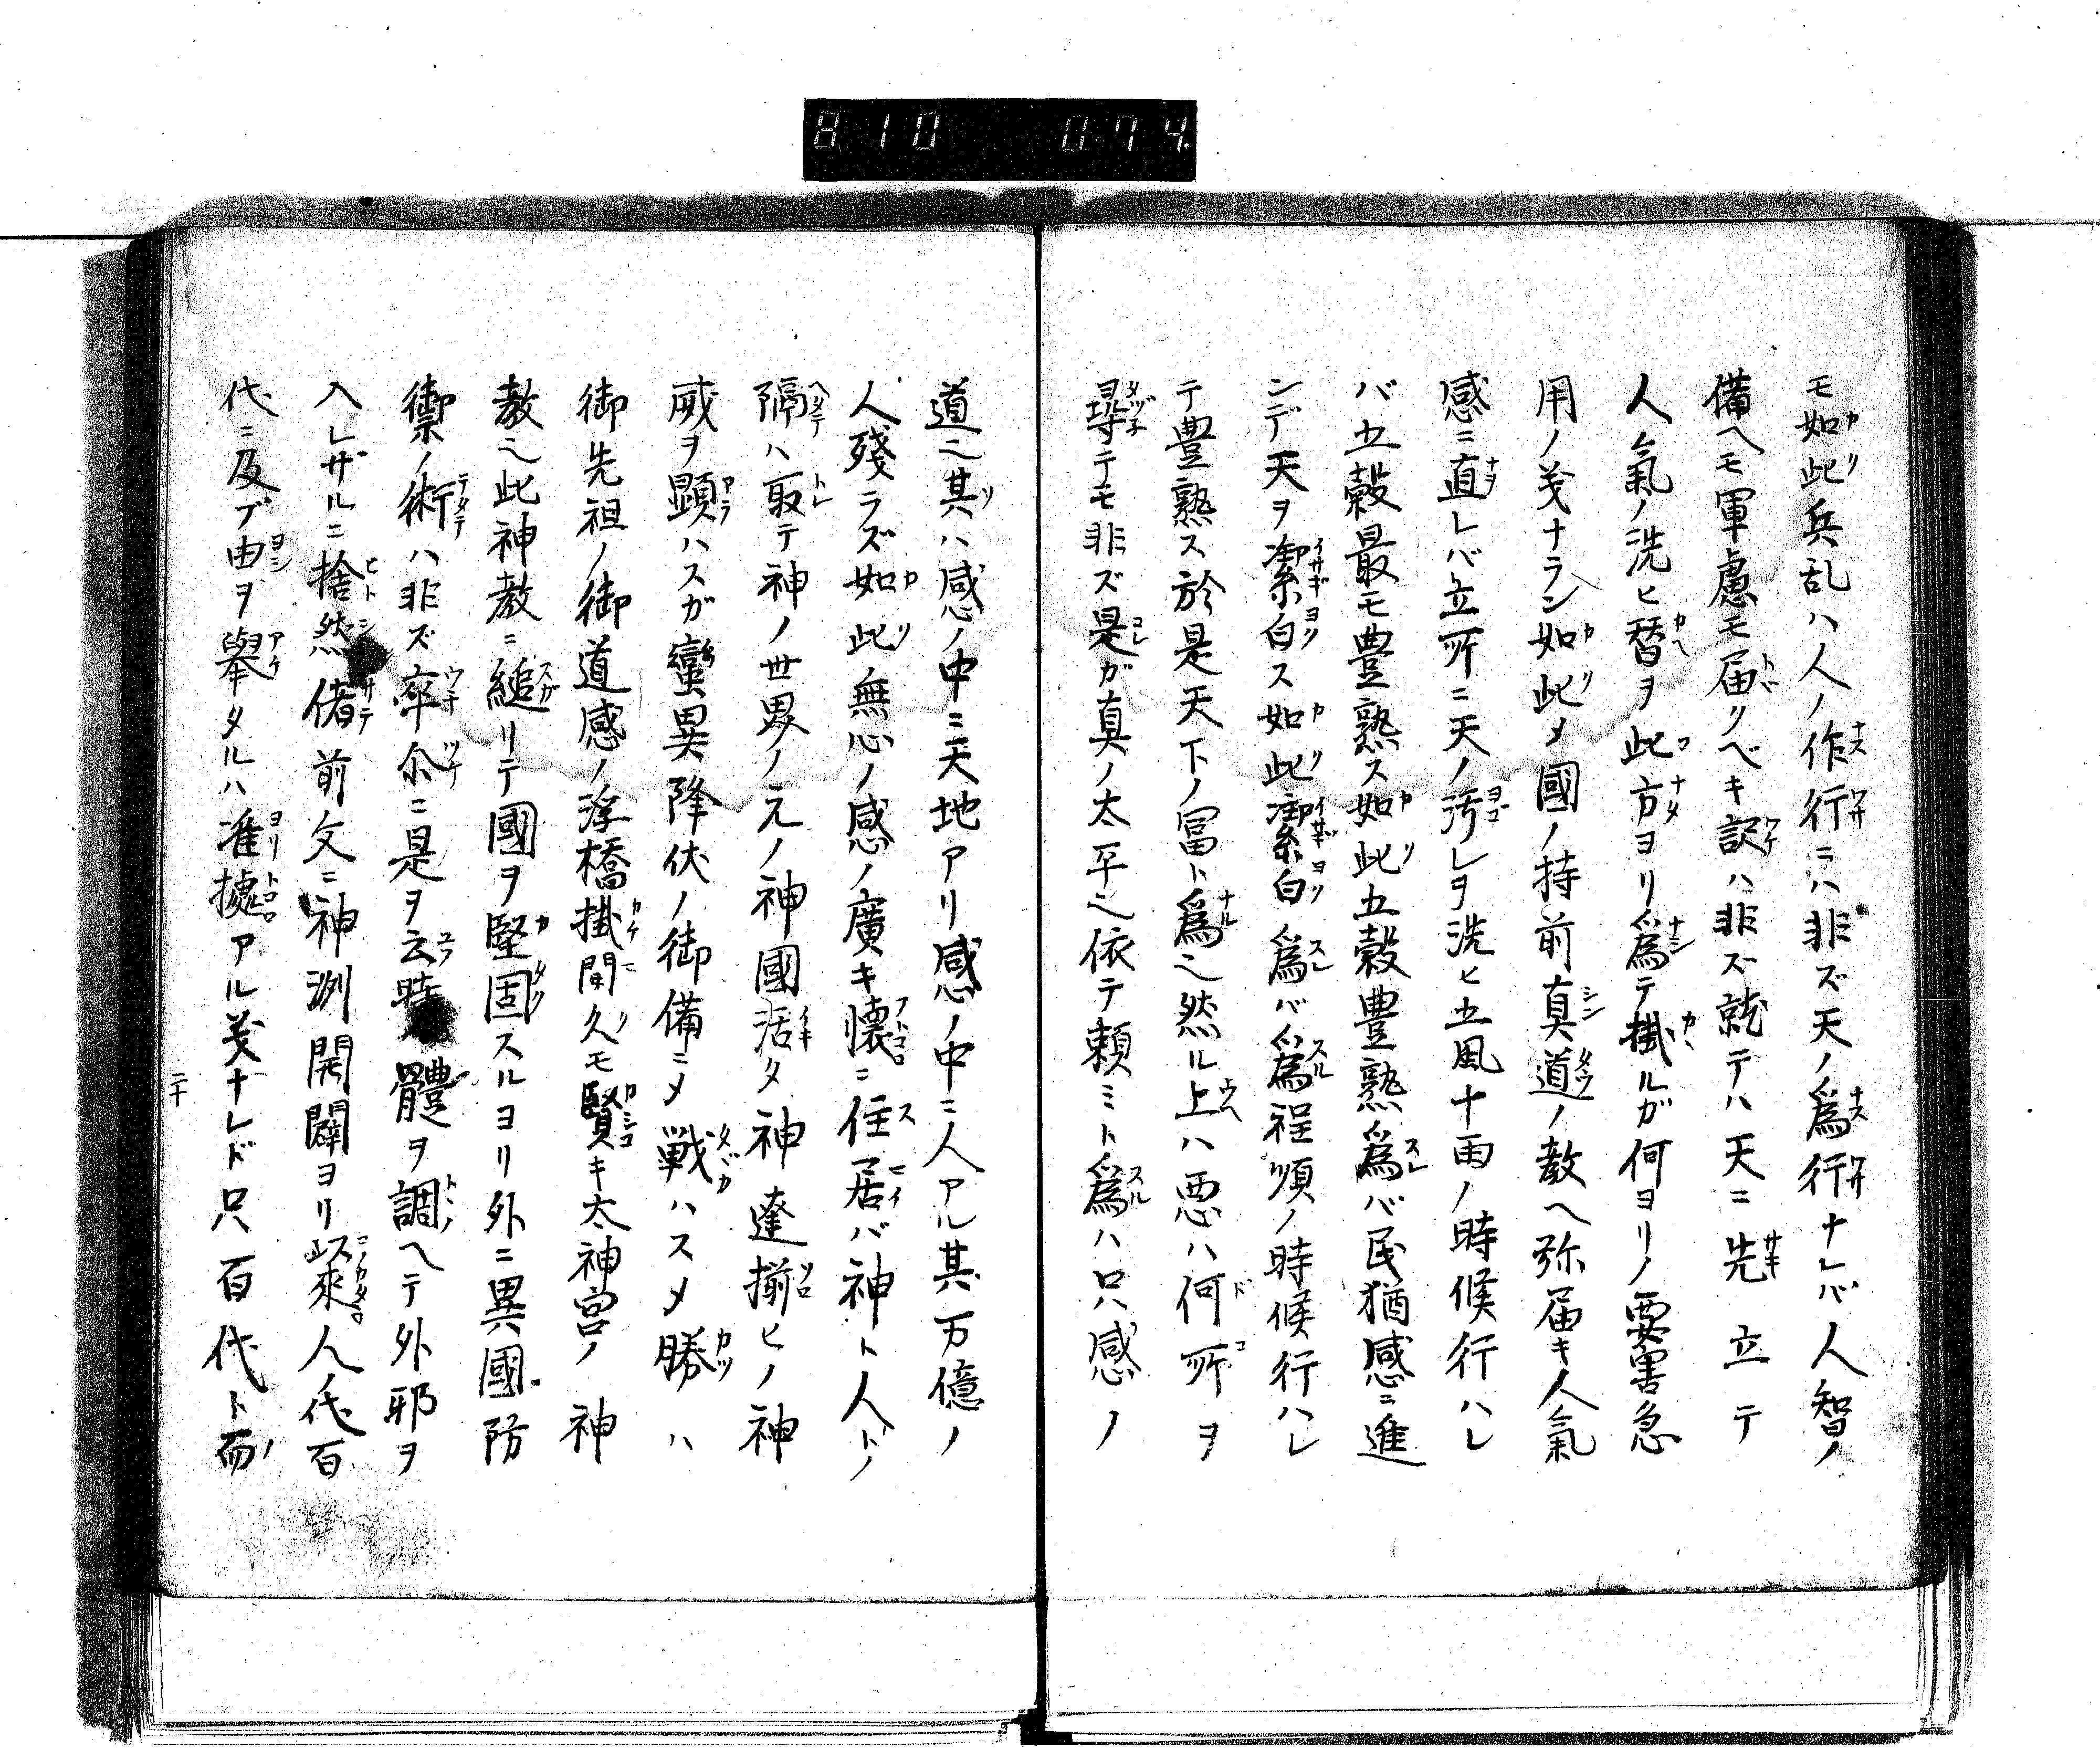 810 074
モ如此兵乱ハ人ノ作行ニハ非ズ天ノ爲行ナレバ人智ノ
備ヘモ軍慮モ届クベキ訳ハ非ズ就テハ天ニ先立テ
人氣ノ洗ヒ替ヲ此方ヨリ爲テ掛ルガ何ヨリノ要害急
用ノ義ナラン如此〆國ノ持前真道ノ教ヘ弥届キ人氣
感ニ直レバ立所ニ天ノ汚レヲ洗ヒ五風十雨ノ時候行ハレ
バ五穀最モ豊熟ス如此五穀豊熟爲バ民猶感ニ進
ンデ天ヲ潔白ス如此潔白爲バ爲程順ノ時候行ハレ
テ豊熟ス於是天下ノ冨ト爲之然ル上ハ悪ハ何所ヲ
尋テモ非ズ是ガ真ノ太平之依テ頼ミト爲ハ只感ノ
道之其ハ感ノ中ニ天地アリ感ノ中ニ人アル其万億ノ
人残ラズ如此無心ノ感ノ廣キ懐ニ住居バ神ト人トノ
隔ハ取テ神ノ世界ノ元ノ神國活タ神達揃ヒノ神
威ヲ顕ハスガ蠻異降伏ノ御備ニ〆戦ハス〆勝ハ
御先祖ノ御道感ノ浮橋掛間久モ賢キ太神宮ノ神
教之此神教ニ縋リテ國ヲ堅固スルヨリ外ニ異國防
禦ノ術ハ非ズ卒尒ニ是ヲ云時ハ體ヲ調ヘテ外邪ヲ
入レザルニ捨然偖前文ニ神洲開闢ヨリ以来人代百
代ニ及ブ由ヲ擧タルハ准據アル義ナレド只百代ト而
二十